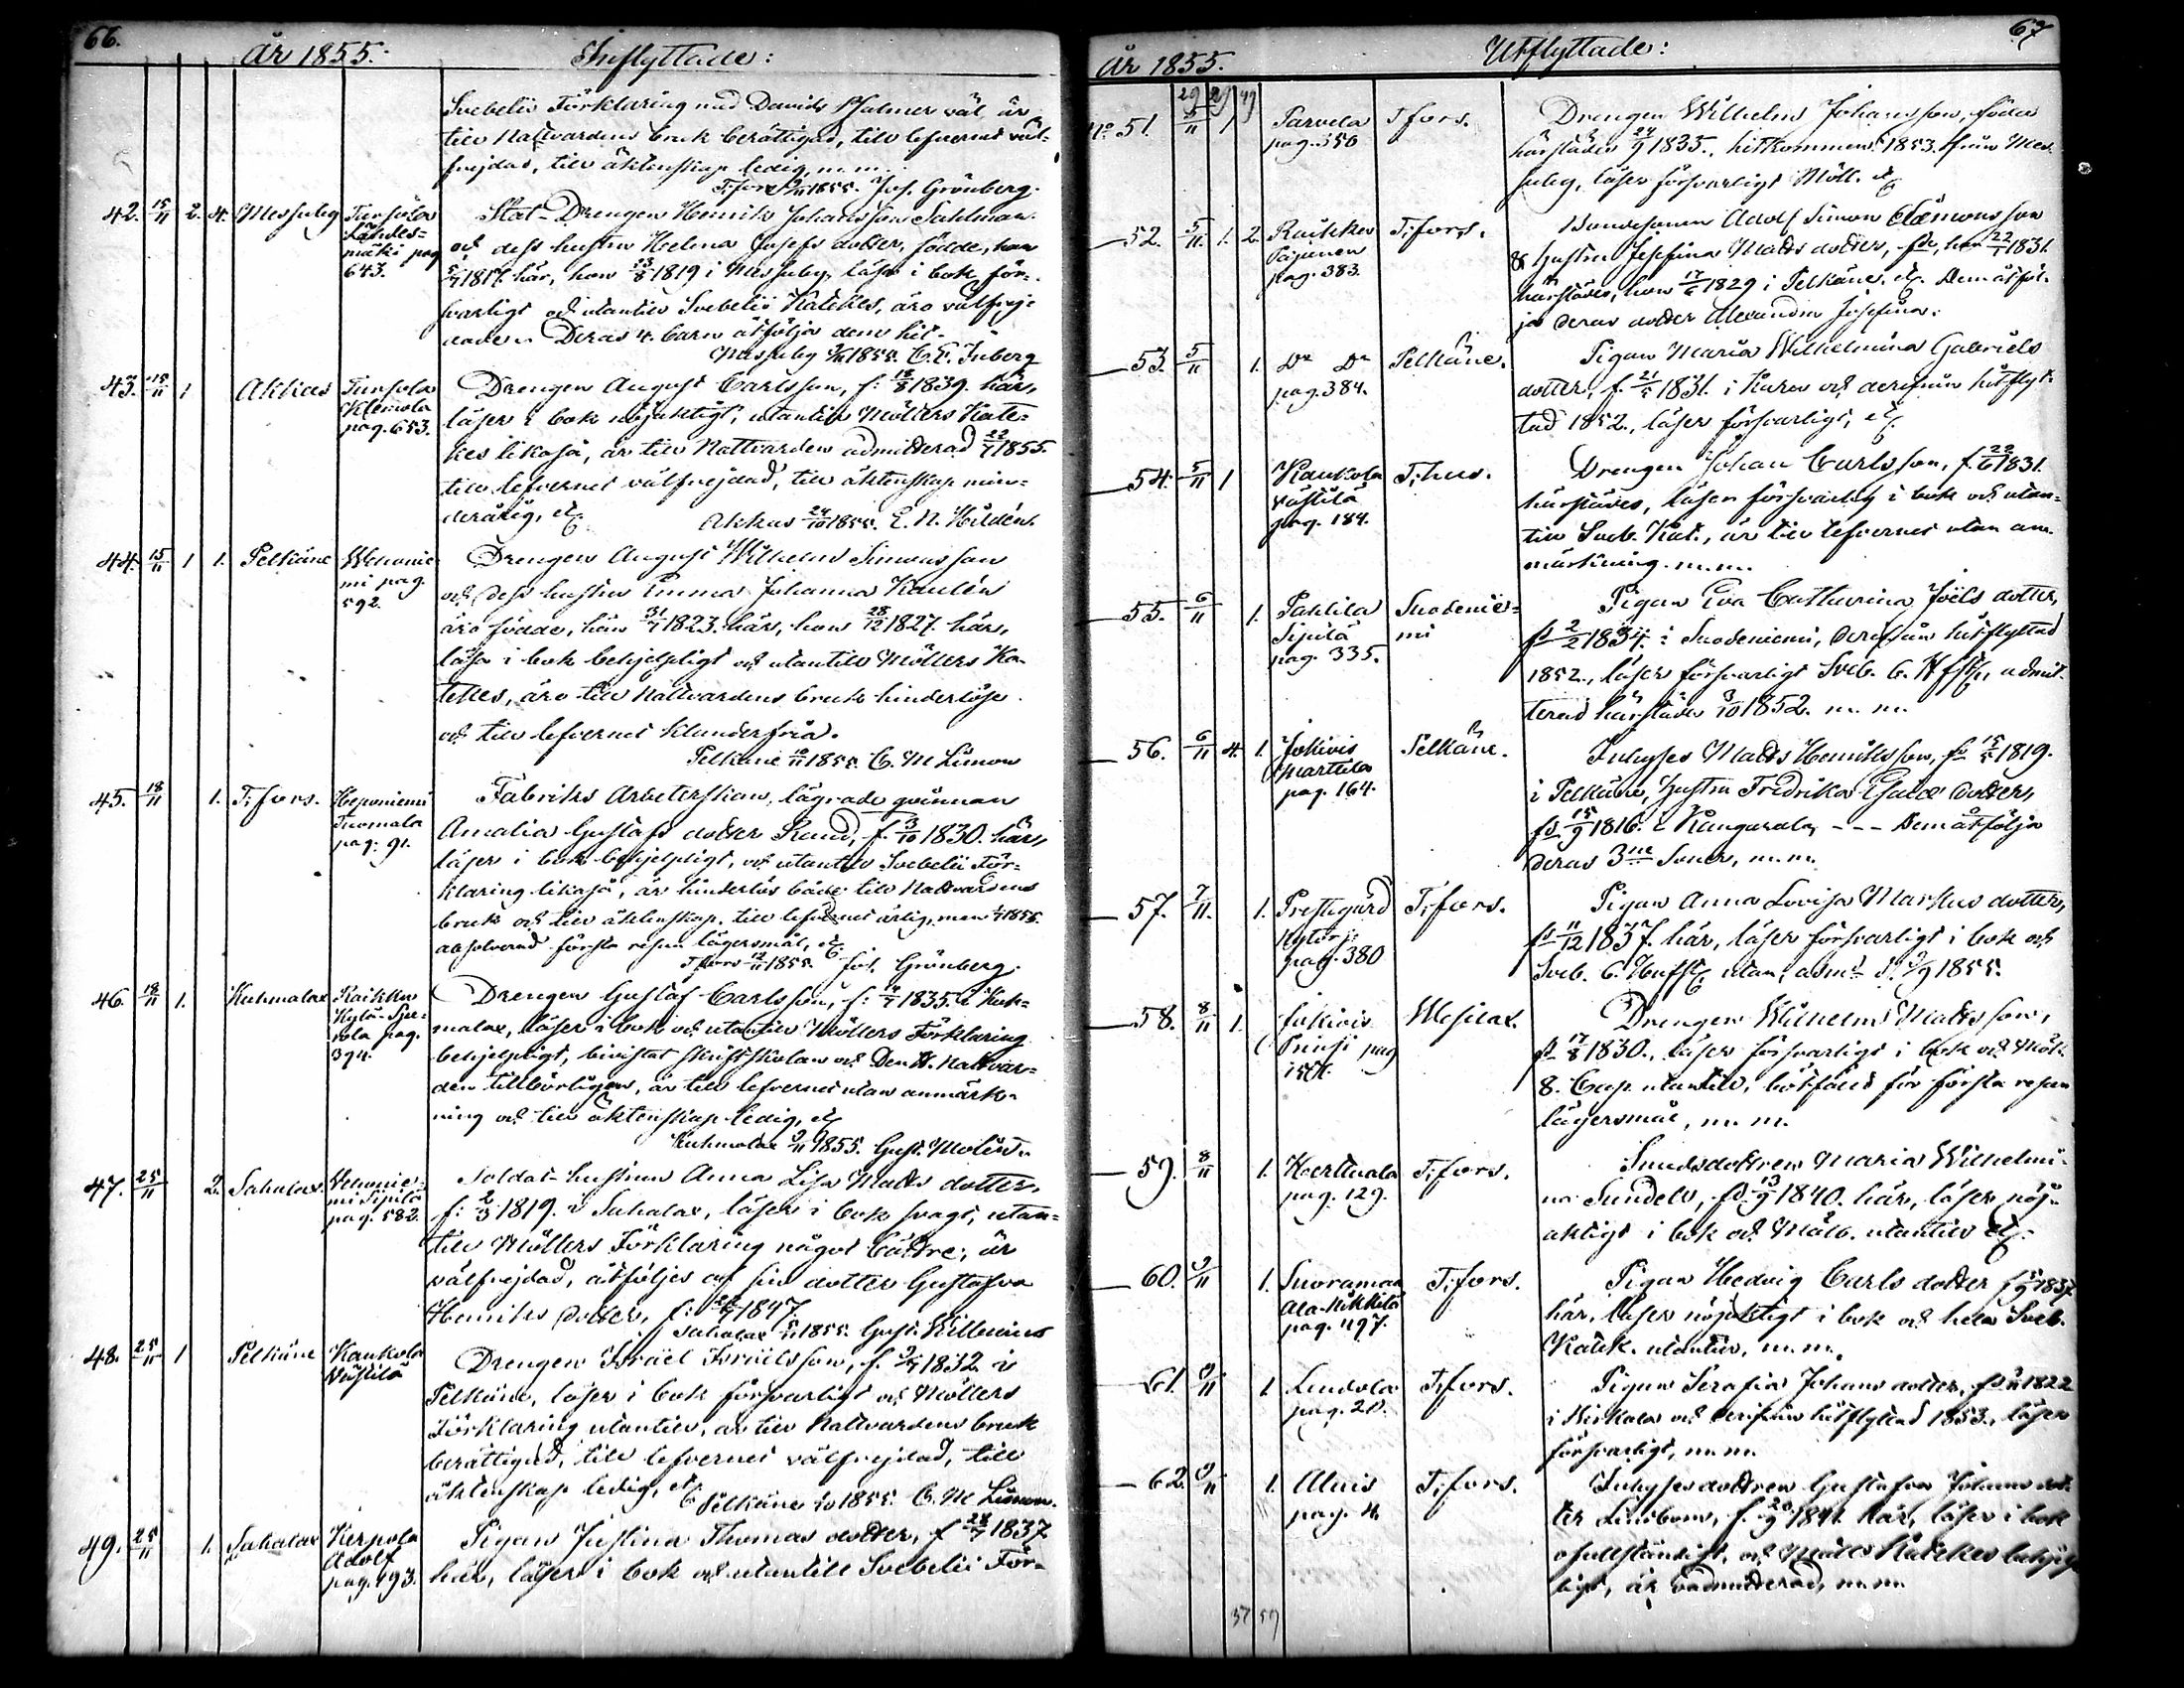 66.
År 1855. Inflyttade:
Svebelii Förklaring med Davids Psalmer väl, är
till Nattvardens bruk berättigad, till lefvernet väl-
frejdad, till äktenskap ledig, m.m.
T:fors 1855. Jos. Grönberg.
42. 15/11 2. 4. Messuby
Lahdes-
mäki pag
643.
Stat-Drengen Henrik Johansson Sahlman
och dess hustru Helena Josefs dotter, födde, han
1817 här, hon 13/8 1819 i Messuby, läsa i bok för-
svarligt och utantill Svebelii Kateches, äro välfrej-
dade. Deras 4. barn åtfölja dem hit.
Messuby 1855. C. E. Inberg
43. 15/11 1 Akkas
pag. 653.
Drengen August Carlsson, f: 18/8 1839. här,
läser i bok nöjaktigt, utantill Möllers Kate-
kes likaså, är till Nattvarden admitterad 22/7 1855.
till lefvernet välfrejdad, till äktenskap min-
derårig, etc.
Akkas 24/10 1855. E. N. Hildén.
44. 15/11 1 1. Pelkäne Wehonie
mi pag.
592.
Drengen August Wilhelm Simonsson
och dess hustru Emma Johanna Kaulén
äro födde, han 31/7 1823. här, hon 28/12 1827. här,
läsa i bok behjelpligt och utantill Möllers Ka-
teches, äro till Nattvardens bruk hinderlöse
och till lefvernet klanderfria.
Pelkäne 10/11 1855. C. M. Limon
45. 18/11 1. T:fors. Heponiemi
Tuomala
pag. 91.
Fabriks Arbeterskan, lägrade qvinnan
Amalia Gustafs dotter Rund, f. 3/10 1830. här,
läser i bok behjelpligt, och utantill Svebelii För-
klaring likaså, är hinderlös både till Nattvardens
bruk och till äktenskap, till lefvernet ärlig, men 1855.
absolverad första resan lägersmål, etc.
T:fors 12/11 1855. Jos. Grönberg.
46. 18/11 1. Kuhmalax Raikku
pag.
394.
Drengen Gustaf Carlsson, f: 1835. i Kuh-
malax, läser i bok och utantill Möllers Förklaring
behjelpligt, bivistat Skriftskolan och Den H. Nattvar-
den tillbörligen, är till lefvernet utan anmärk-
ning och till äktenskap ledig, etc
Kuhmalax 9/11 1855. Gust. Molin
47. 25/11 2. Sahalax. Wehonie-
mi Sipilä
pag. 582.
Soldat-hustrun Anna Lisa Matts dotter,
f: 2/3 1819. i Sahalax, läser i bok svagt, utan-
till Möllers Förklaring något bättre, är
välfrejdad, åtföljes af sin dotter Gustafva
Henriks dotter, f: 1847.
Sahalax 1855. Gust. Willenius
48. 25/11 1 Pelkäne Kaukola
Västilä
Drengen Israël Israëlsson, f. 1832. i
Pelkäne, läser i bok försvarligt och Möllers
Förklaring utantill, är till Nattvardens bruk
berättigad, till lefvernet välfrejdad, till
äktenskap ledig, etc
Pelkäne 1855. C. M. Limon.
49. 25/11 1. Sahalax Kerpola
Adolf
pag. 193.
Pigan Justina Thomas dotter, f 28/7 1837
här, läser i bok och utantill Svebelii För-
67
År 1855. Utflyttade:
29 29 49
No 51. 5/11 1 Parvela
pag. 350
T:fors. Drengen Wilhelm Johansson, född
härstädes 24/9 1835., hitkommen 1853. från Mes-
suby, läser försvarligt Möll. etc
52. 5/11 1. 2. Raikku
Paijanen
pag. 383.
T:fors. Bondesonen Adolf Simon Clemensson
& hustru Josefina Matts dotter, f:de, han 22/7 1831.
härstädes, hon 17/6 1829 i Pelkäne, etc. Dem åtföl-
jer deras dotter Alexandra Josefina.
53. 5/11 1. Do Do
pag. 384.
Pelkäne. Pigan Maria Wilhelmina Gabriels
dotter, f. 21/5 1831. i Karve och derifrån hitflyt-
tad 1852., läser försvarligt, etc
54. 5/11 1 Kaukola
Västilä
pag. 184.
T:hus. Drengen Johan Carlsson, f. 22/6 1831.
härstädes, läser försvarlig i bok och utan-
till Sveb. Kat., är till lefvernet utan an-
märkning. m.m.
55. 6/11 1. Pakkila
Sipilä
pag. 335.
Suodenie-
mi
Pigan Eva Catharina Joëls dotter,
fd 2/2 1834. i Suodeniemi, derifrån hitflyttad
1852., läser försvarligt Sveb. admit-
terad härstädes 3/10 1852. m. m.
56. 6/11 4. 1. Jokivis
Marttila
pag. 164.
Pelkäne. Inhyses Matts Henriksson, fd 15/5 1819.
i Pelkäne, hustru Fredrika dotter,
fd 15/9 1816. i Kangasala, --- Dem åtfölja
deras 3ne Söner, m.m.
57. 7/11. 1. Prestegård
pag. 380
T:fors. Pigan Anna Lovisa Markus dotter,
fd 11/12 1837. här, läser försvarligt i bok och
Sveb. utan, 1855.
58. 8/11 1. Jokivis
Prinsi pag
Wesilax. Drengen Wilhelm Matts son,
fd 17/8 1830., läser försvarligt i bok och Möll.
8. Cap. utantill, bötfäld för första resan
lägersmål, m. m.
59. 8/11 1. Koertuala
pag. 129.
T:fors. Smedsdottren Maria Wilhelmi-
na Sundell, fd. 13/9 1840. här, läser nöj-
aktligt i bok och Möll. utantill etc.
60. 9/11 1. Suoramaa
Ala-Kikkilä
pag. 497.
T:fors. Pigan Hedvig Carls dotter 1837
här, läser nöjaktligt i bok och hela Sveb.
Katek. utantill, m.m.
61. 9/11 1 Lendola
pag. 20.
T:fors. Pigan Serafia Johans dotter, 1822
i Birkala och derifrån hitflyttad 1853., läser
försvarligt, m.m.
62. 9/11 1. Alnis
pag. 4.
T:fors. Inhysesdottren Gustafva Johans dot-
ter Lindbom, f. 20/9 1841. här, läser i bok
ofullständigt, och Mölls Katekes behjelp
ligt, är oadmitterad, m.m.
37 59